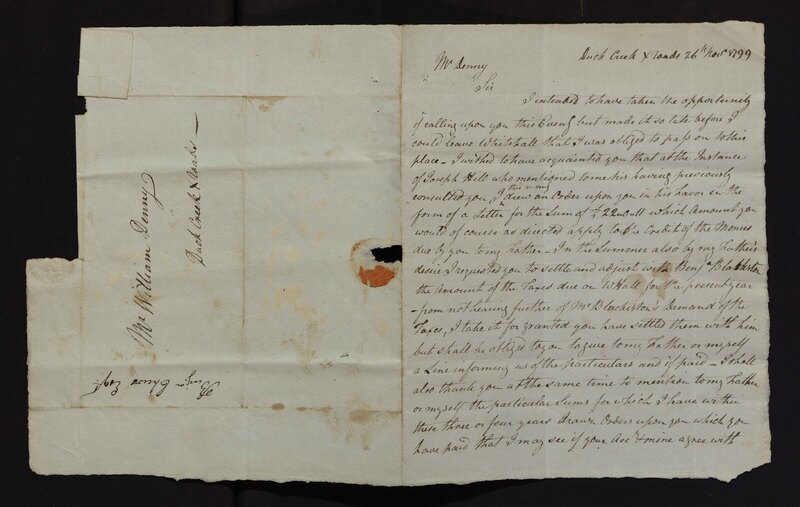 Mr William Denny
Duck Creek X Roads
Benjn Chew Esqr.
Duck Creek X roads 26th Novr 1799
Mr Denny
Sir
I intended to have taken the opportunity
of calling upon you this Eveng but made it so late before I
could leave Whitehall that I was obliged to pass on to this
place - I wished to have acquainted you that at the Instance
of Joseph Hill who mentioned to me his having previously
consulted you, I this morng drew an Order upon you in his favor in the
form of a Letter for the Sum of which Amount you
would of course as directed apply to the Credit of the Monies
due by you to my Father - In the Summer also by my Father's
desire I requested you to settle and adjust with Benjn Blackiston
the Amount of the Taxes due on WHall for the present year
- from not hearing further of Mr Blackiston's Demand of the
Taxes, I take it for granted you have settled them with him
but shall be obliged to you to give to my Father or myself
a Line informing us of the particulars and if paid - I shall
also thank you at the same time to mention to my Father
or myself the particular Sums for which I have within
these three or four years drawn Orders upon you which you
have paid that I may see if your Acc & mine agree with